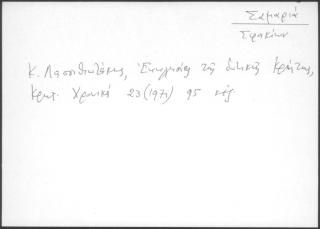 Σαμαριά
Σφακίων
Κ. Λασσιθιωτάκης, Ἐκκλησίες τῆς δυτικῆς Κρήτης,
Κρητ. Χρονικά 23 (1971) 95 κἑξ.